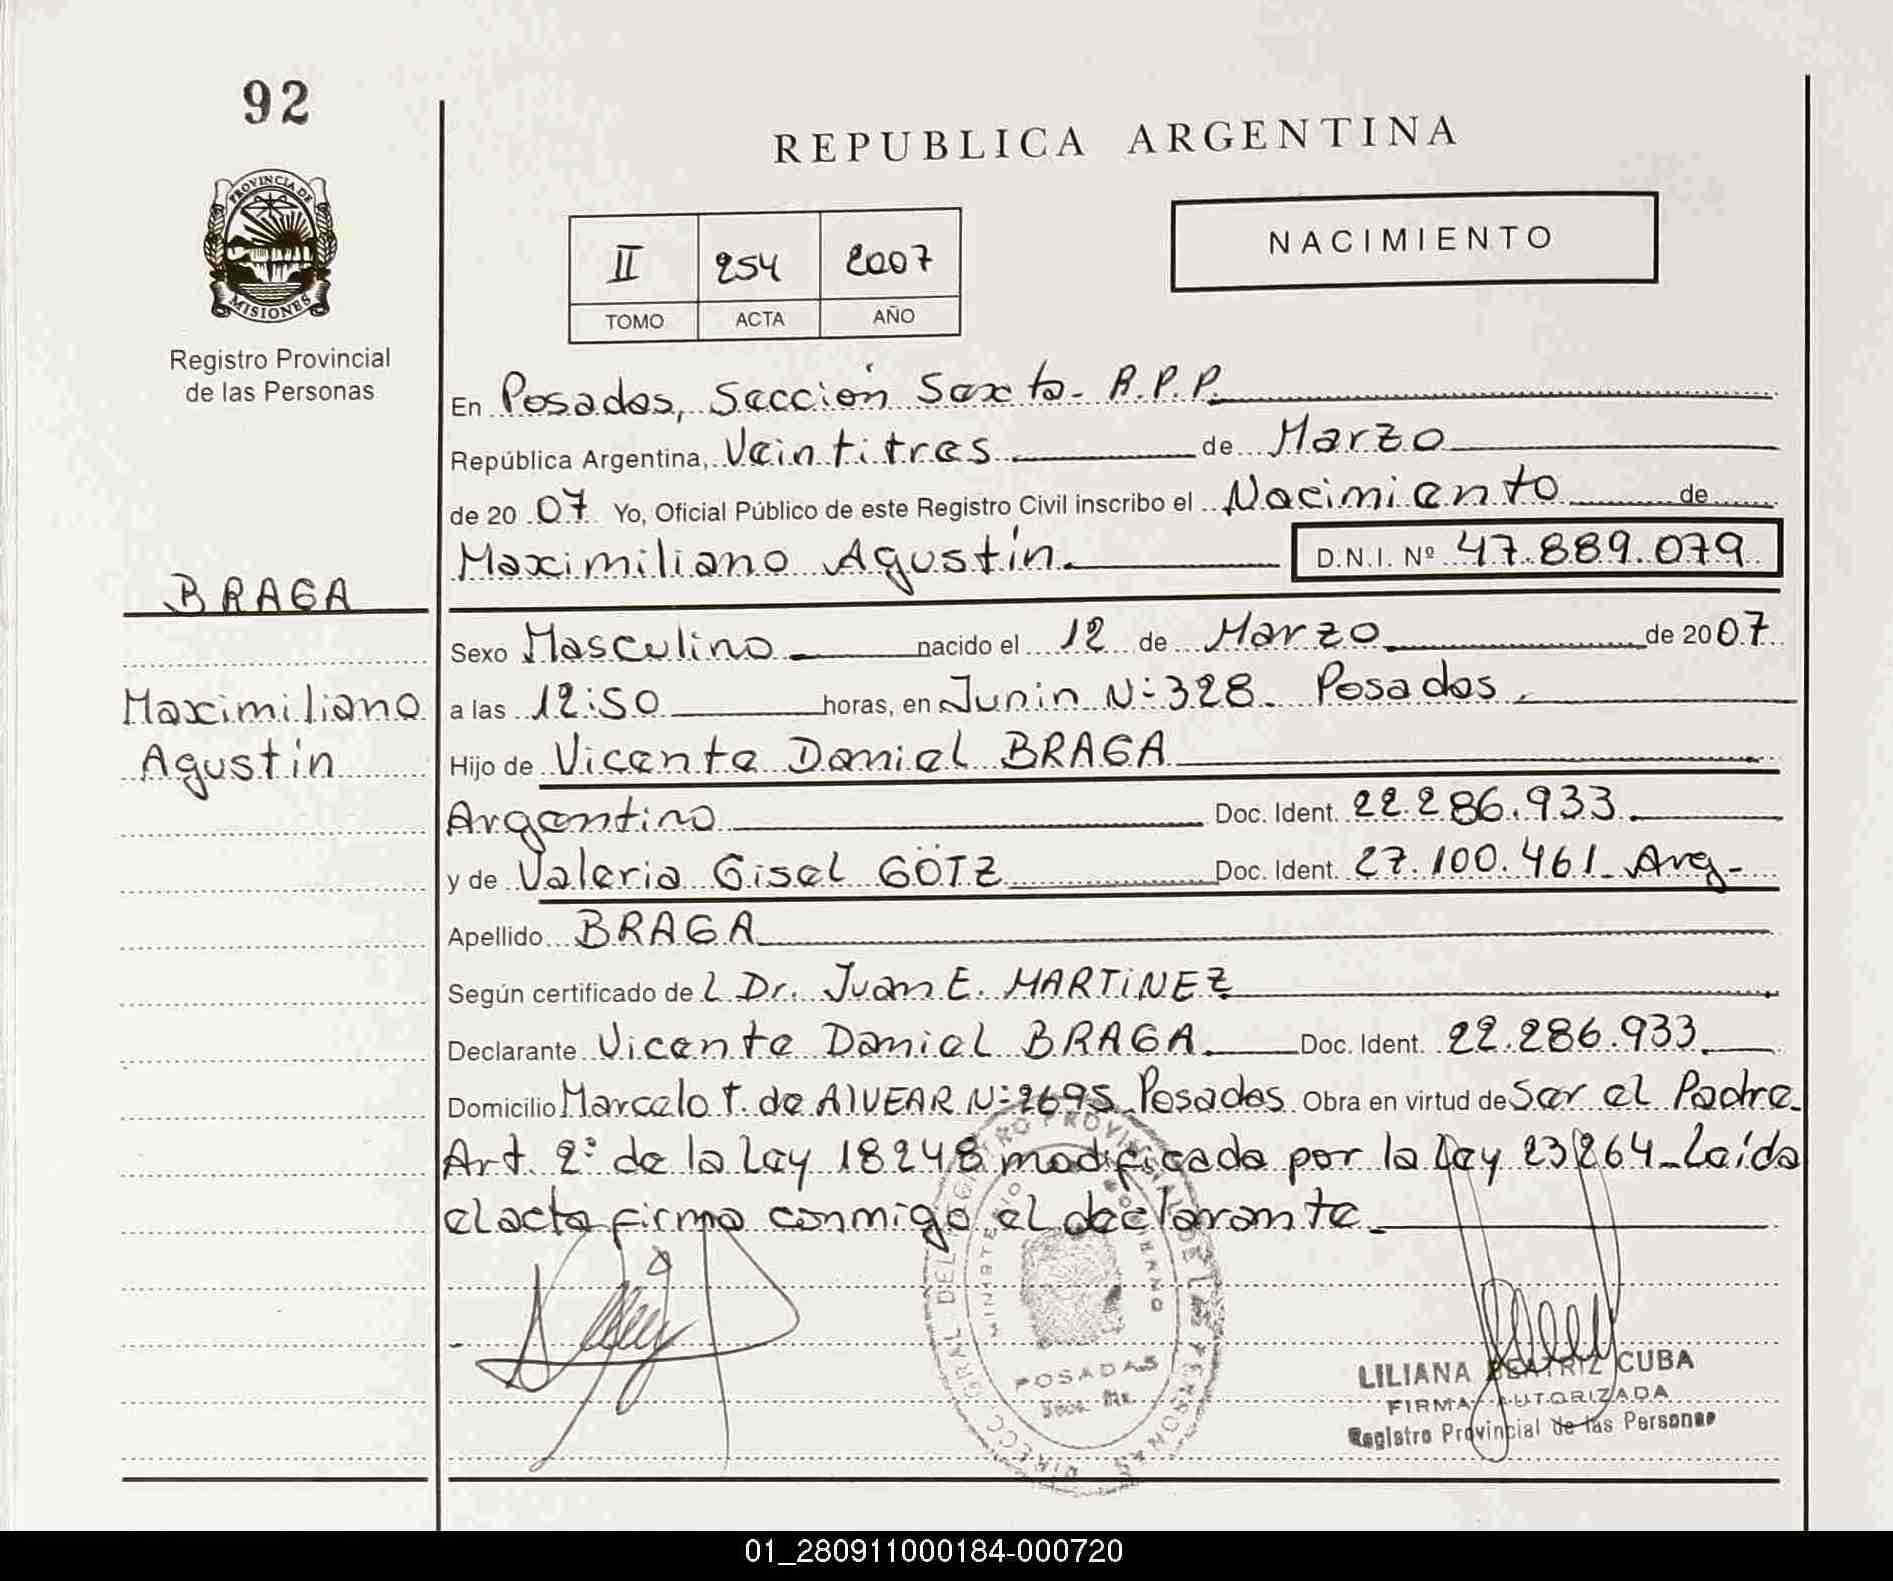 92
PROVINCIA DE
MISIONES
Registro Provincial
de las Personas
REPUBLICA ARGENTINA
NACIMIENTO
II 254 2007
TOMO ACTA AÑO
En Posadas, Sección Sexta- R.P.P.
República Argentina, Veintitres de Marzo
de 2007 Yo, Oficial Público de este Registro Civil inscribo el Nacimiento de
Maximiliano Agustín. D.N.I. Nº 47.889.079
BRAGA
Sexo Masculino nacido el 12 de Marzo de 2007
Maximiliano
Agustín
a las 12:50 horas, en Junin Nº 328. Posadas.
Hijo de Vicente Daniel BRAGA
Argentino Doc. Ident. 22.286.933.
y de Valeria Gisel GÖTZ Doc. Ident. 27.100.461_ Arg-
Apellido BRAGA
Según certificado de l Dr. Juan E. MARTiNEZ
Declarante Vicente Daniel BRAGA. Doc. Ident. 22.286.933.
Domicilio Marcelo T. de AlVEAR Nº 2695 Posadas Obra en virtud de Ser el Padre.
Art. 2º de la Ley 18248 modificada por la Ley 23264_Leída
el acta firma conmigo el declarante.
DIRECC. GRAL. DEL REGISTRO PROVINCIAL DE LAS PERSONAS
MINISTERIO GOBIERNO
POSADAS
LILIANA BEATRIZ CUBA
FIRMA AUTORIZADA
Registro Provincial de las Personas
01_280911000184-000720